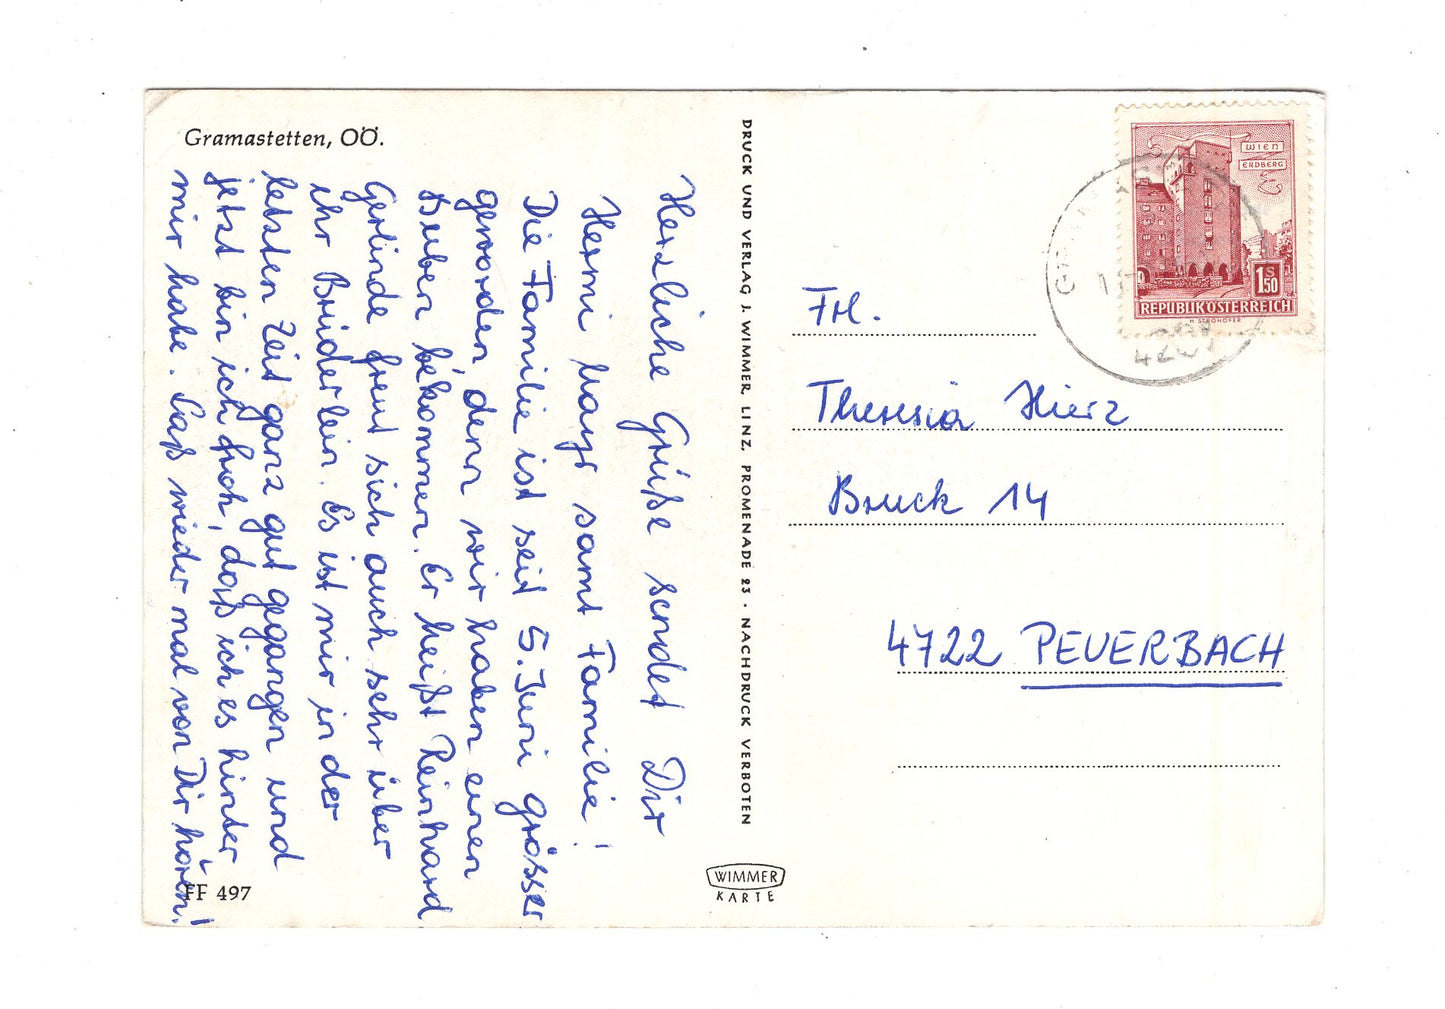 Gramastetten, OÖ.
Herzliche Grüße sendet Dir
Hermi Mayr samt Familie!
Die Familie ist seit 5. Juni grösser
geworden, denn wir haben einen
Buben bekommen. Er heißt Reinhard
Gerlinde freut sich auch sehr über
ihr Brüderlein. Es ist mir in der
letzten Zeit ganz gut gegangen und
jetzt bin ich froh, daß ich es hinter
mir habe. Laß wieder mal von Dir hören!
FF 497
DRUCK UND VERLAG J. WIMMER, LINZ, PROMENADE 23 · NACHDRUCK VERBOTEN
WIMMER
KARTE
WIEN
ERDBERG
1 S 50
REPUBLIK ÖSTERREICH
H. STROHOFER
Frl.
Theresia Hierz
Bruck 14
4722 PEUERBACH